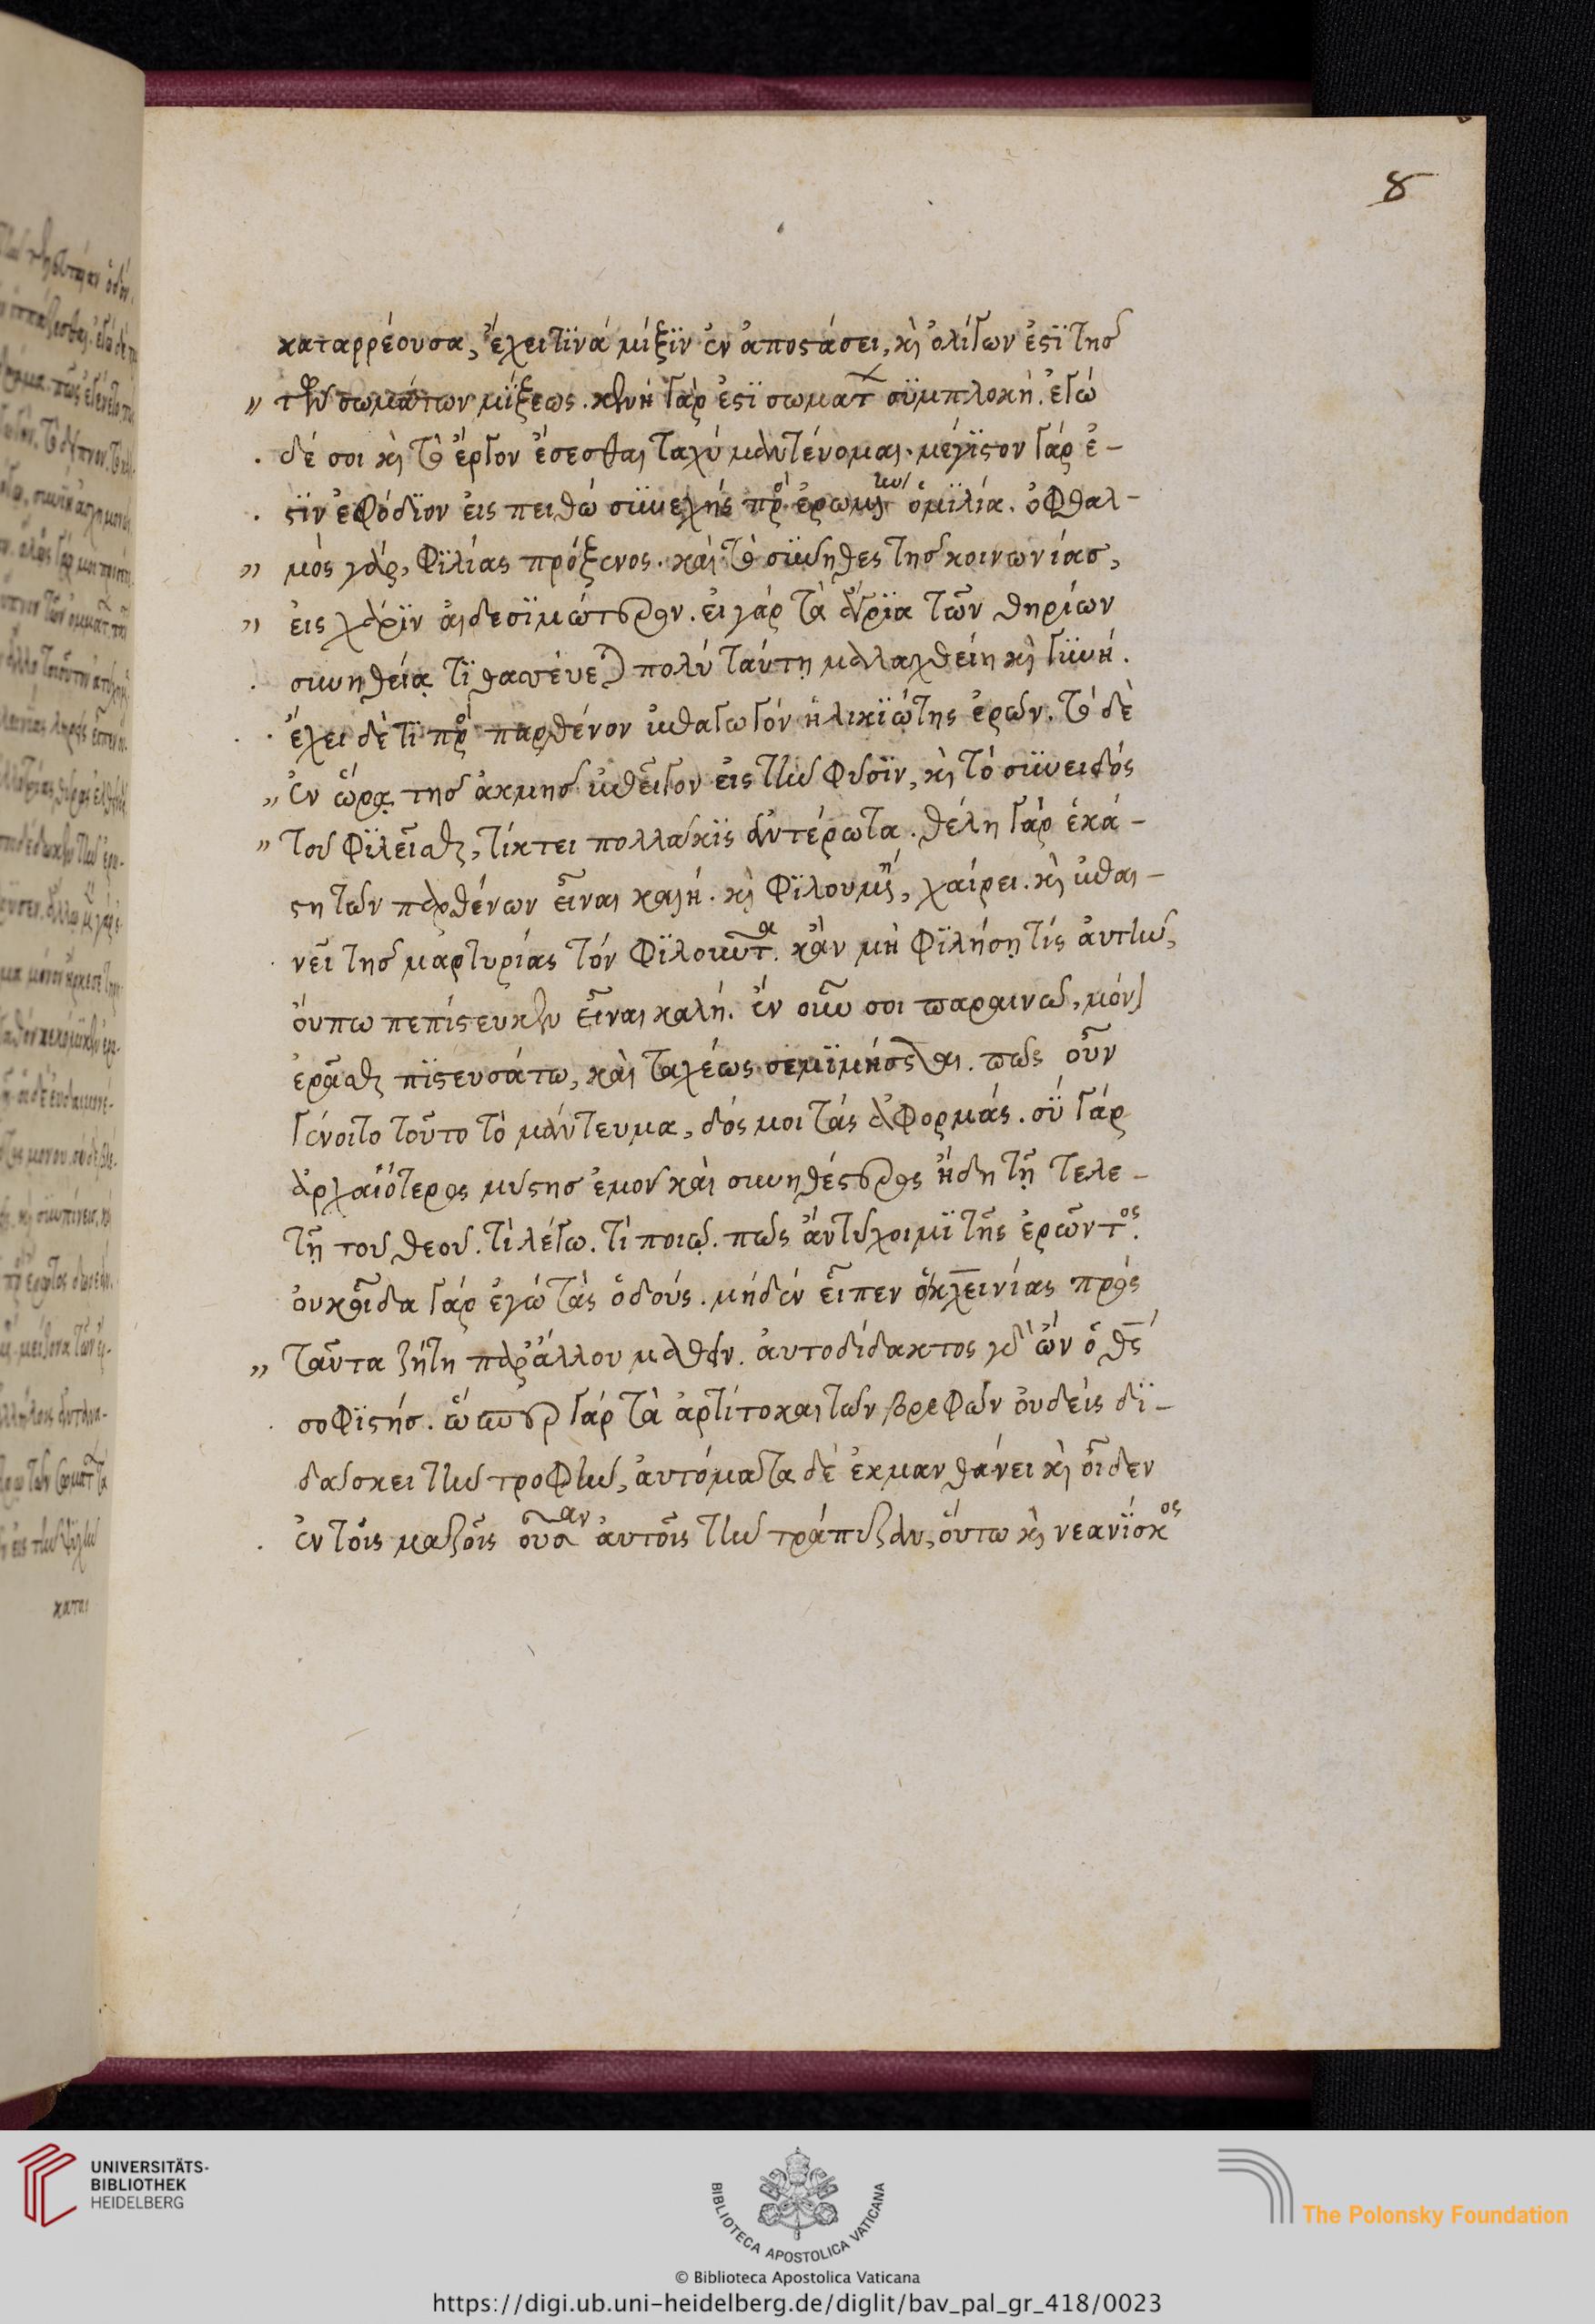 8
καταρρέουσα, ἔχει τϊνά μίξϊν ἐν ἀποστάσει, κὶ ὀλίγων ἐστϊ τῆσ
" τῶν σωμάτων μϊξεως. κενὴ γὰρ ἐστϊ σωματ συμπλοκή. ἐγώ
. δέ σοι κὶ τὸ ἔργον ἔσεσθαι ταχύ μαντέυομαι. μέγϊστον γάρ ἐ-
. στϊν ἐφόδϊον εἰς πειθώ συνεχής πρὸ ἐρωμένην ὁμϊλία. ὀφθαλ-
" μὸς γὰρ, φϊλίας πρόξενος. καὶ τὸ σύνηθες τησ κοινωνίασ,
" εἰς χάρϊν ἀιδεσϊμώτερον. εἰ γάρ τὰ ἄγρϊα τῶν θηρίων
. συνηθείᾳ τϊθασέυεται πολύ ταύτη μαλαχθείη κὶ γυνή.
. ἔχει δὲ τϊ πρὸ παρθένον ἐπαγωγόν ἡλικϊώτης ἐρῶν. τὸ δὲ
" ἐν ὥρᾳ τησ ἀκμησ ἐπεῖγον εἰς τὴν φύσϊν, κὶ τὸ συνειδός
" τοῦ φϊλεῖσθαι, τίκτει πολλάκϊς ἀντέρωτα. θέλη γὰρ ἑκά-
στη τῶν παρθένων εἶναι καλή. κὶ φϊλουμένη, χαίρει. κὶ ἐπαι-
. νεῖ τησ μαρτυρίας τόν φϊλουντα. κἂν μὴ φϊλήσῃ τίς ἀυτὴν,
ὄυπω πεπίστευκεν εἶναι καλή. ἕν οὖν σοι παραινῶ, μόνον
ἐρᾶσθαι πϊστευσάτω, καὶ ταχέως σεμϊμήσεται. πῶς οὖν
γένοιτο τοῦτο τὸ μάντευμα, δός μοι τάς ἀφορμάς. σύ γάρ
ἀρχαϊότερος μύστησ ἐμοῦ καὶ συνηθέστερος ἤδη τῇ τελε-
τῇ τοῦ θεοῦ. τὶ λέγω. τὶ ποιῶ. πῶς ἄν τύχοιμϊ τῆς ἐρῶντος.
ὀυκοῖδα γάρ ἐγώ τὰς ὁδούς. μηδέν εἶπεν ὁκλεινίας πρός
" ταῦτα ζήτη παράλλου μαθεῖν. ἀυτοδίδακτος γὰρ ὤν ὁ θς
. σοφϊστήσ. ὥσπερ γάρ τὰ ἀρτίτοκα τῶν βρεφῶν ὀυδεὶς δϊ-
δασκει τὴν τροφὴν, ἀυτόματα δὲ ἐκμανθάνει κὶ οἶδεν
. ἐν τοῖς μαζοῖς οὖσαν ἀυτοῖς τὴν τράπεζαν, ὅυτω κὶ νεανϊσκος
UNIVERSITÄTS-
BIBLIOTHEK
HEIDELBERG
BIBLIOTECA APOSTOLICA VATICANA
The Polonsky Foundation
© Biblioteca Apostolica Vaticana
https://digi.ub.uni-heidelberg.de/diglit/bav_pal_gr_418/0023